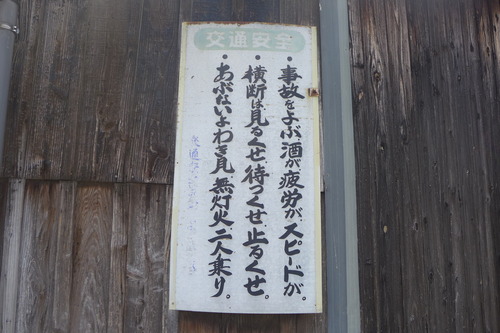 交通安全
・事故をよぶ酒が疲労がスピードが。
・横断は見るくせ待つくせ止るくせ。
・あぶないよわき見無灯火二人乗り。